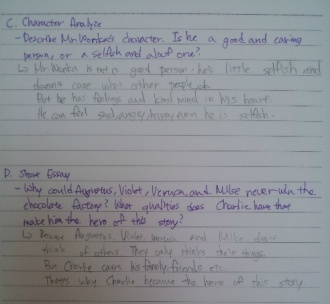 C. Character Analyze
- Describe Mr. Wonka's character. Is he a good and caring
person, or a selfish and alouf one?
↳ Mr Wonka is not a good person. he's little selfish and
doesn't care what other people
But he has feelings and kind mind in his heart.
He can feel sad, angry, even he is selfish.
D. Short Essay
- Why could Augustus, Violet, Veruca, and Mike never win the
chocolate factory? What qualities does Charlie have that
make him the hero of this story?
↳ Because Augustus, Violet, Veruca and Mike
think of others. They only thinks their things.
But Charlie cares his family, friends etc.
That's why Charlie became the hero of this story.